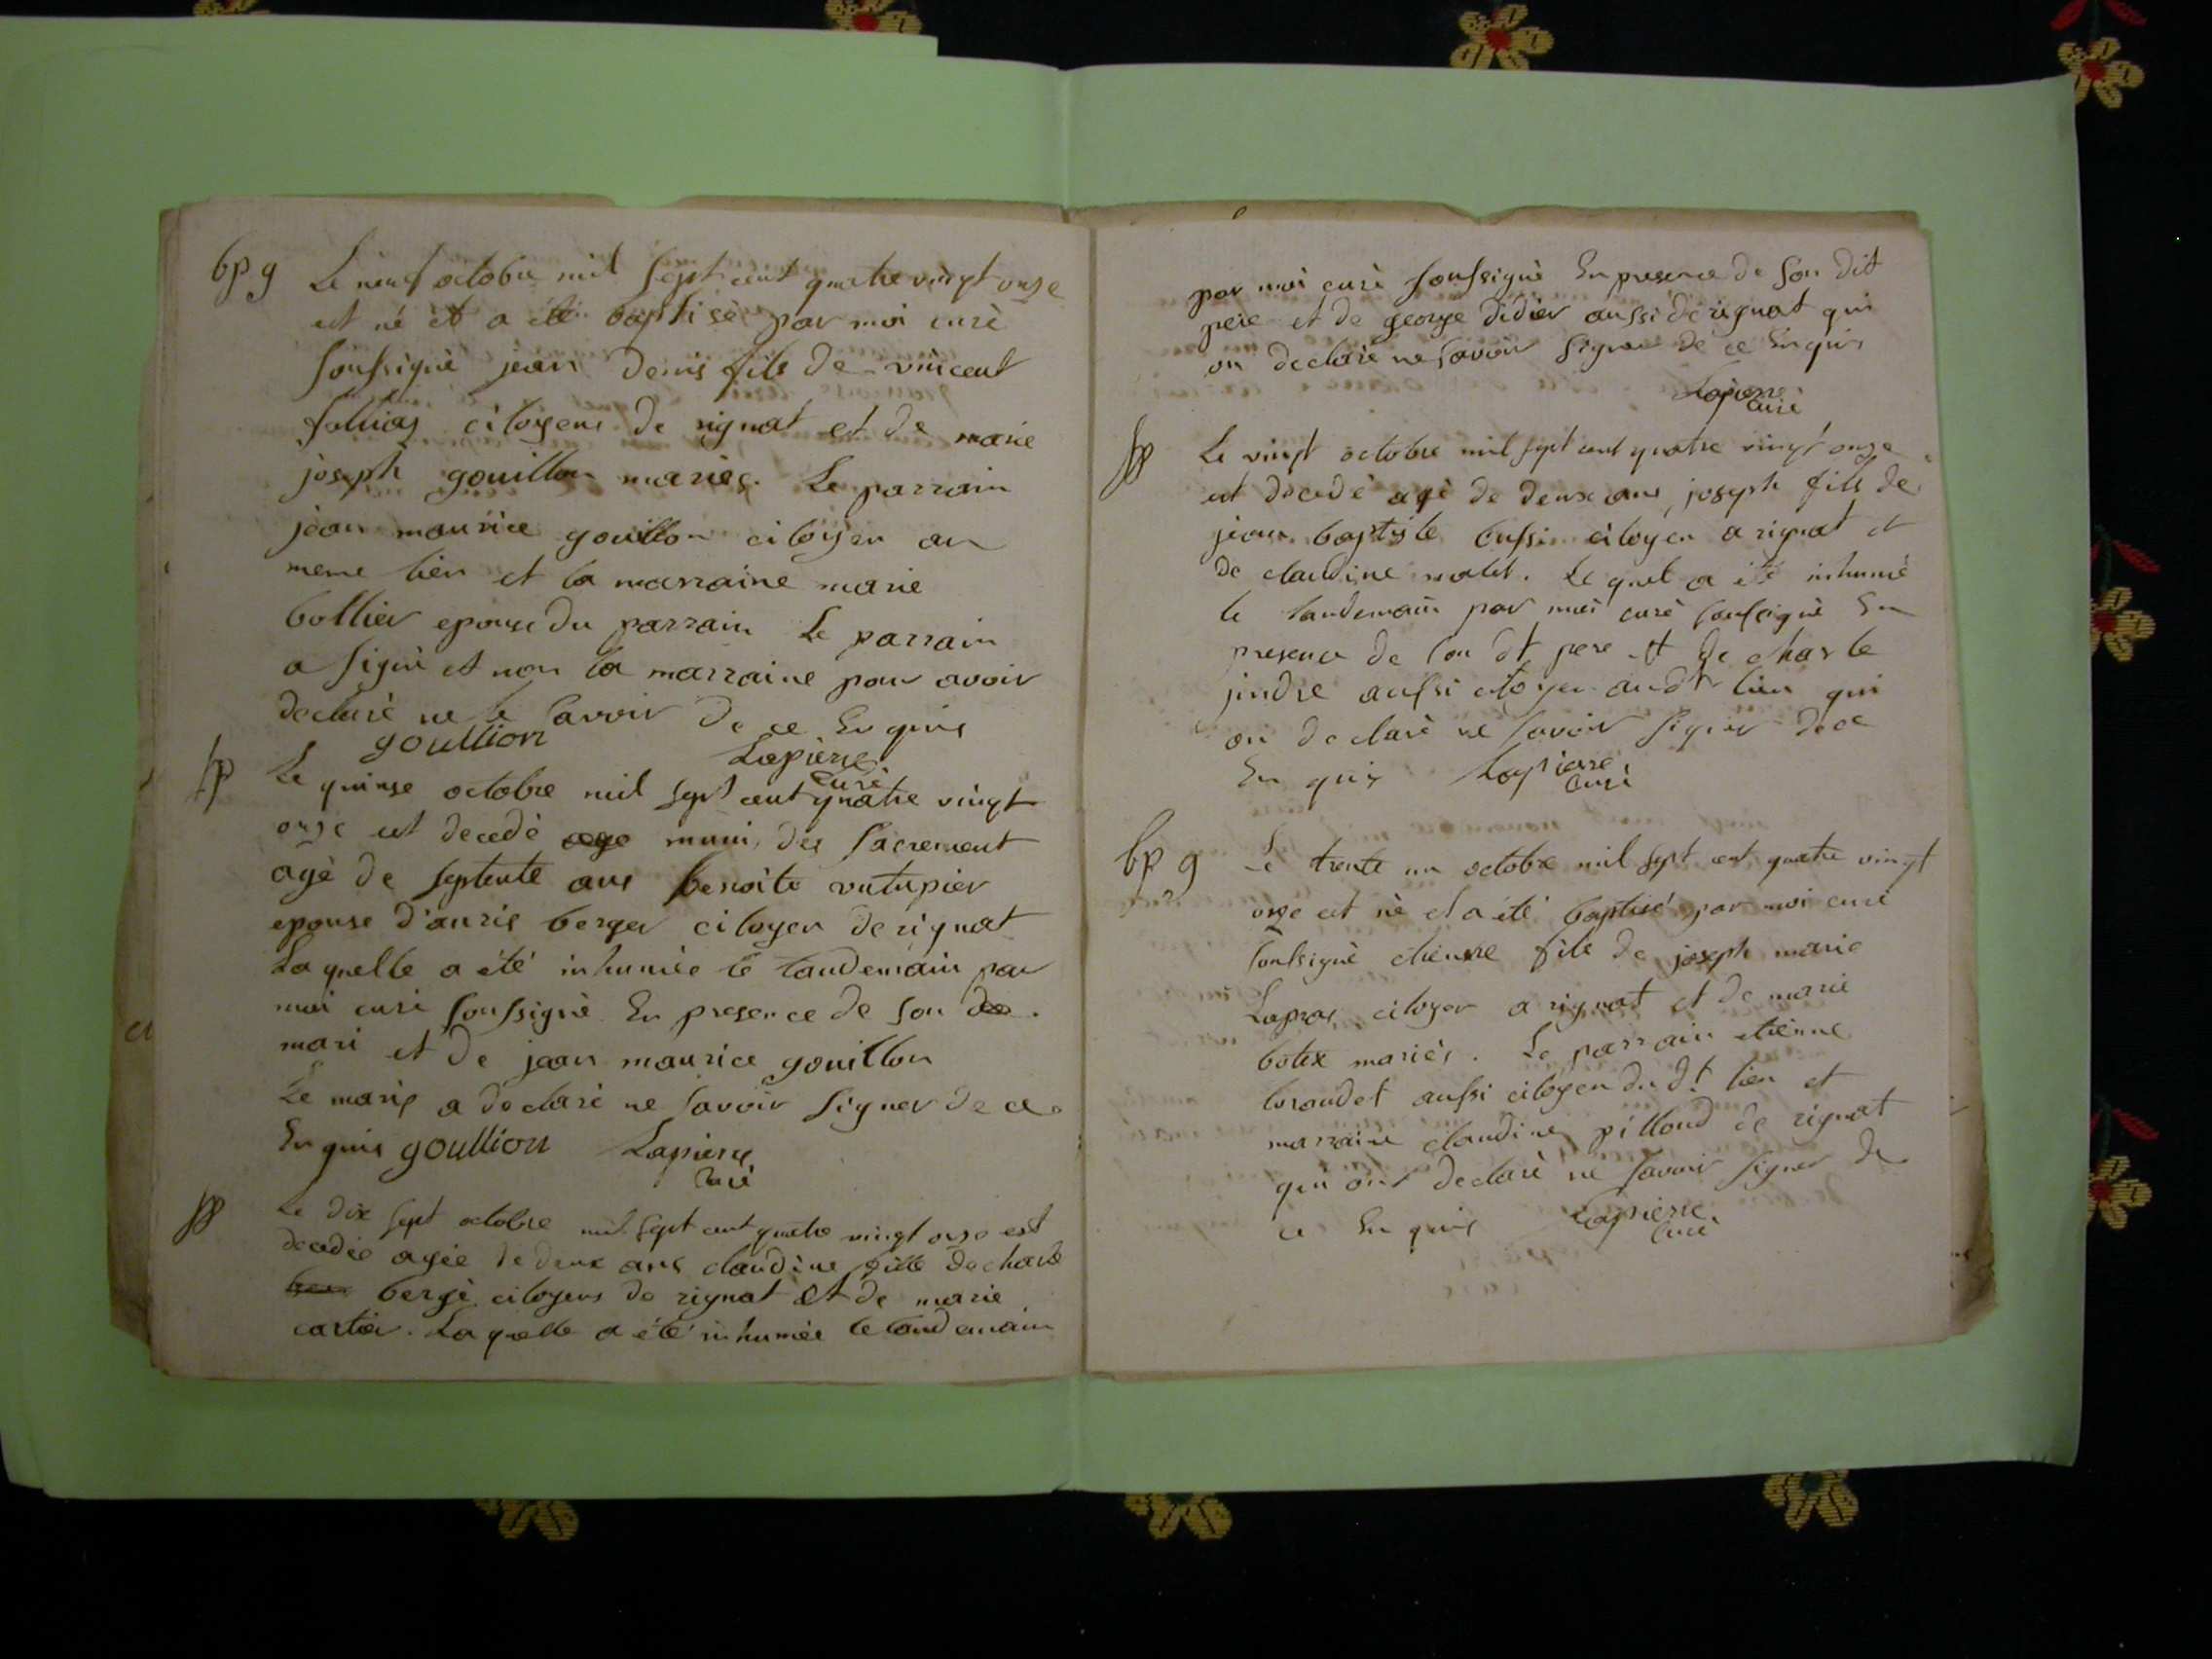 bp g Le neuf octobre mil sept cent quatre vingt onze
est né et a été baptisé par moi curè
soussignè jean denis fils de vincent
follias citoyens de rignat et de marie
joseph gouillon mariés. Le parrain
jean maurice gouillon citoyen au
meme lieu et la marraine marie
bollier epouse du parrain Le parrain
a signè et non la marraine pour avoir
declarè ne le savoir de ce enquis
goullion Lapierre
curè
Le quinse octobre mil sept cent quatre vingt
onze est decedè muni des sacrement
agè de septente ans benoite
epouse d'auris berger citoyen de rignat
Laquelle a été inhumée le landemain par
moi curè soussignè En presence de son
mari et de jean maurice gouillon
Le maris a declarè ne savoir signer de ce
Enquis goullion Lapierre
curè
Le dix sept octobre mil sept cent quatre vingt onze est
decedée agée de deux ans claudine fille de charle
bergè citoyens de rignat et de marie
cartier. Laquelle a été inhumée le landemain
par moi curè soussignè En presence de son dit
pere et de george didier aussi de rignat qui
on declarè ne savoir signer de ce Enquis
Lapierre
curè
Le vingt octobre mil sept cent quatre vingt onze
est decedè agè de deux ans, joseph fils de
jean baptiste bussi citoyen a rignat et
de claudine. Le quel a été inhumé
le landemain par moi curè soussignè En
presence de son dt pere et de charle
jindre aussi citoyen audt lieu qui
on declarè ne savoir signer de ce
Enquis Lapierre
curè
bp g Le trente un octobre mil sept cent quatre vingt
onze est nè et a été baptisé par moi curè
soussignè etienne fils de joseph marie
Lapras citoyen a rignat et de marie
botex mariès. Le parrain etienne
aussi citoyen du dt lieu et
marraine claudine pilloud de rignat
qui ont declarè ne savoir signer de
ce Enquis Lapierre
curè